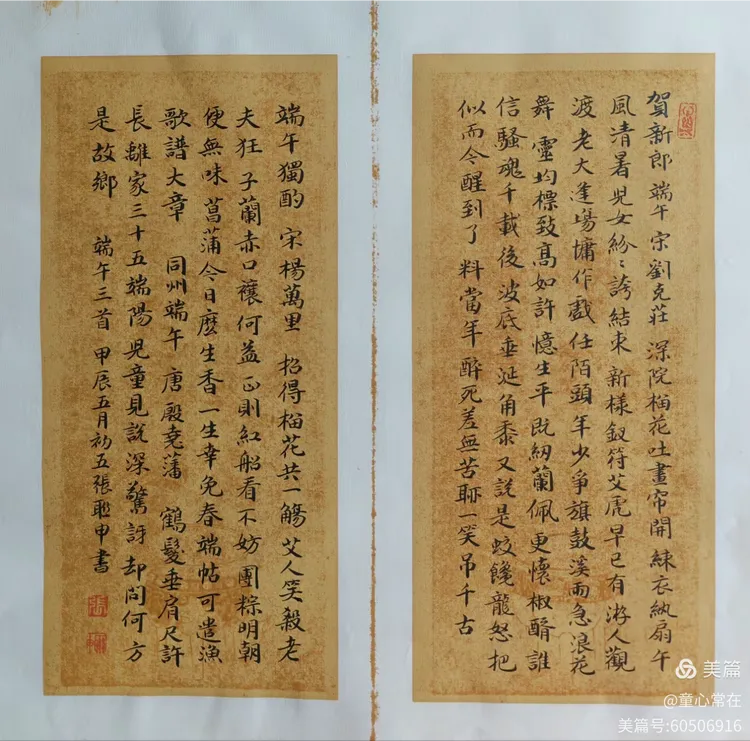 賀新郎 端午 宋劉克莊 深院榴花吐畫帘開綀衣紈扇午
風清暑兒女紛〻誇結束新樣釵符艾虎早已有游人觀
渡老大逢場慵作戲任陌頭年少爭旗鼓溪雨急浪花
舞 靈均標致高如許憶生平既紉蘭佩更懷椒醑誰
信騷魂千載後波底垂涎角黍又說是蛟饞龍怒把
似而今醒到了料當年醉死差無苦聊一笑吊千古
端午獨酌 宋楊萬里 招得榴花共一觴艾人笑殺老
夫狂子蘭赤口禳何益正則紅船看不妨團粽明朝
便無味菖蒲今日麽生香一生幸免春端帖可遣漁
歌譜大章 同州端午 唐殷堯藩 鶴髮垂肩尺許
長離家三十五端陽兒童見說深驚訝却問何方
是故鄉 端午三首 甲辰五月初五張申書
美篇
@童心常在
美篇号:60506916